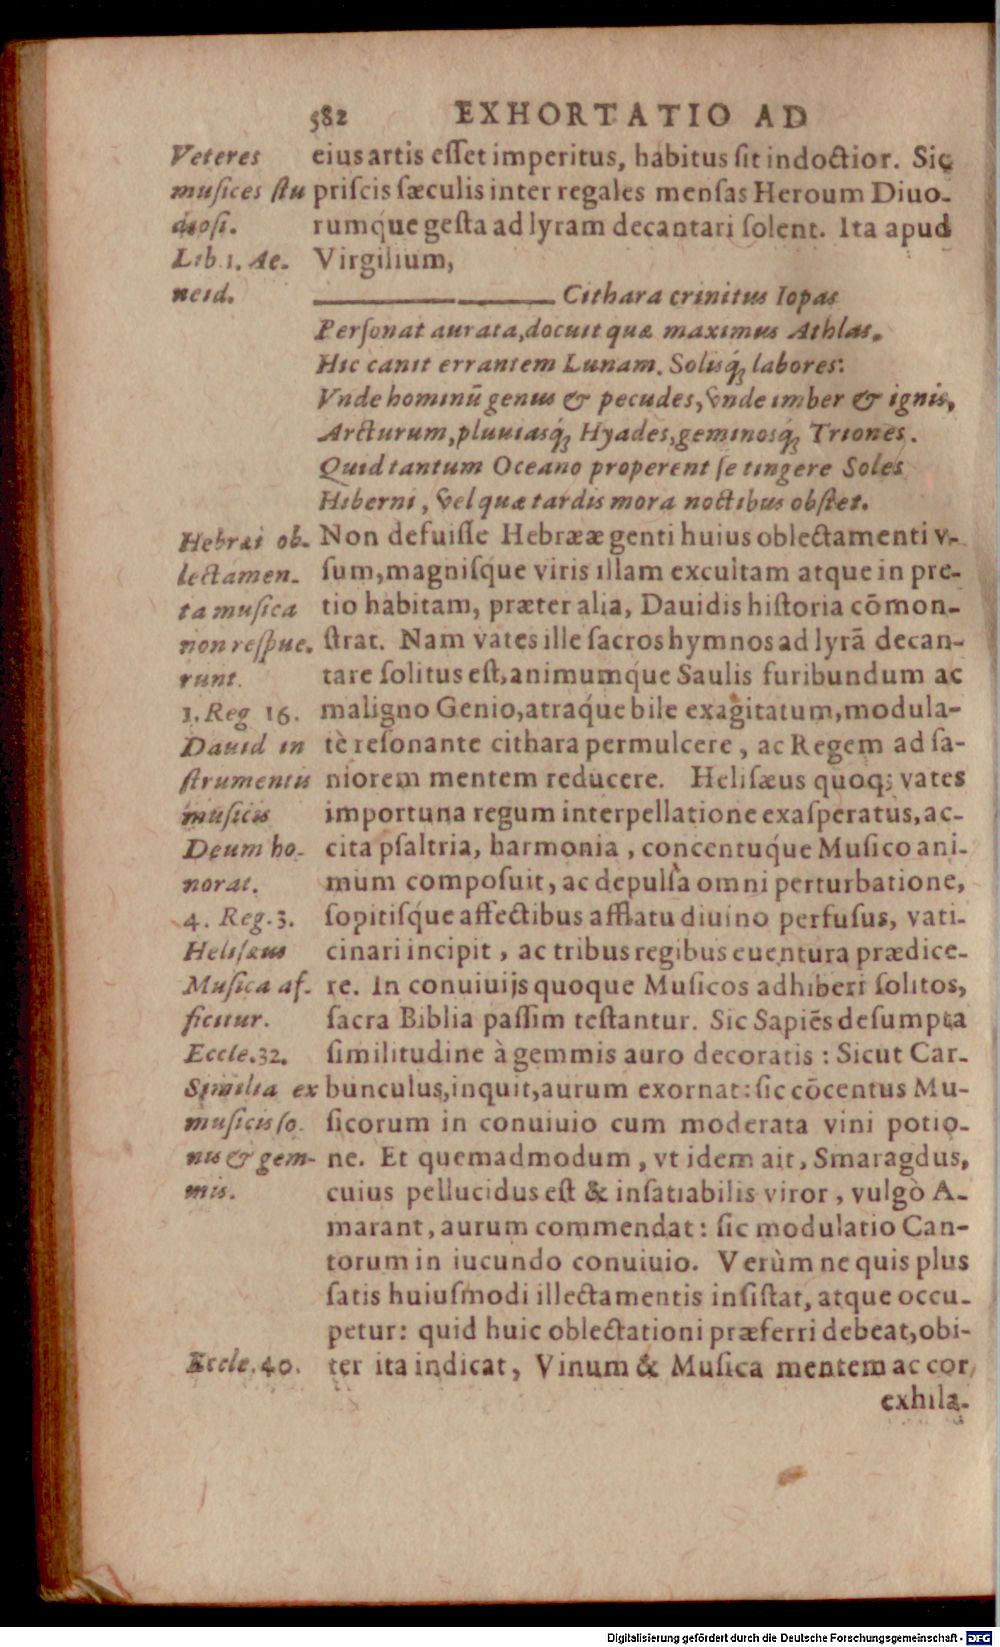 582 EXHORTATIO AD
Veteres
musices stu
diosi.
Lib 1. Ae.
neid.
eius artis eſſet imperitus, habitus ſit indoctior. Sic
priſcis ſæculis inter regales menſas Heroum Diuo-
rumq́ue geſta ad lyram decantari ſolent. Ita apud
Virgilium,
Cithara crinitus Iopas
Perſonat aurata, docuit quæ maximus Athlas.
Hic canit errantem Lunam. Solisq́; labores:
Vnde hominū genus & pecudes, vnde imber & ignis,
Arcturum, pluuiasq́; Hyades, geminosq́; Triones.
Quid tantum Oceano properent ſe tingere Soles
Hiberni, vel quæ tardis mora noctibus obſtet.
Hebræi ob-
lectamen-
ta muſica
non reſpue-
runt.
1. Reg 16.
Dauid in
ſtrumentis
muſicis
Deum ho-
norat.
4. Reg. 3.
Heliſæus
Muſica af-
ficitur.
Eccle. 32.
Similia ex
muſicis ſo-
nis & gem-
mis.
Non defuiſſe Hebrææ genti huius oblectamenti v-
ſum, magniſq́ue viris illam excultam atque in pre-
tio habitam, præter alia, Dauidis hiſtoria cōmon-
ſtrat. Nam vates ille ſacros hymnos ad lyrā decan-
tare ſolitus eſt, animumq́ue Saulis furibundum ac
maligno Genio, atraq́ue bile exagitatum, modula-
tè reſonante cithara permulcere, ac Regem ad ſa-
niorem mentem reducere. Heliſæus quoq; vates
importuna regum interpellatione exaſperatus, ac-
cita pſaltria, harmonia, concentuq́ue Muſico ani-
mum compoſuit, ac depulſa omni perturbatione,
ſopitiſq́ue affectibus afflatu diuino perfuſus, vati-
cinari incipit, ac tribus regibus euentura prædice-
re. In conuiuijs quoque Muſicos adhiberi ſolitos,
ſacra Biblia paſſim teſtantur. Sic Sapiēs deſumpta
ſimilitudine à gemmis auro decoratis: Sicut Car-
bunculus, inquit, aurum exornat: ſic cōcentus Mu-
ſicorum in conuiuio cum moderata vini potio-
ne. Et quemadmodum, vt idem ait, Smaragdus,
cuius pellucidus eſt & inſatiabilis viror, vulgò A-
marant, aurum commendat: ſic modulatio Can-
torum in iucundo conuiuio. Verùm ne quis plus
ſatis huiuſmodi illectamentis inſiſtat, atque occu-
petur: quid huic oblectationi præferri debeat, obi-
Eccle. 40.
ter ita indicat, Vinum & Muſica mentem ac cor
exhila-
Digitalisierung gefördert durch die Deutsche Forschungsgemeinschaft - DFG